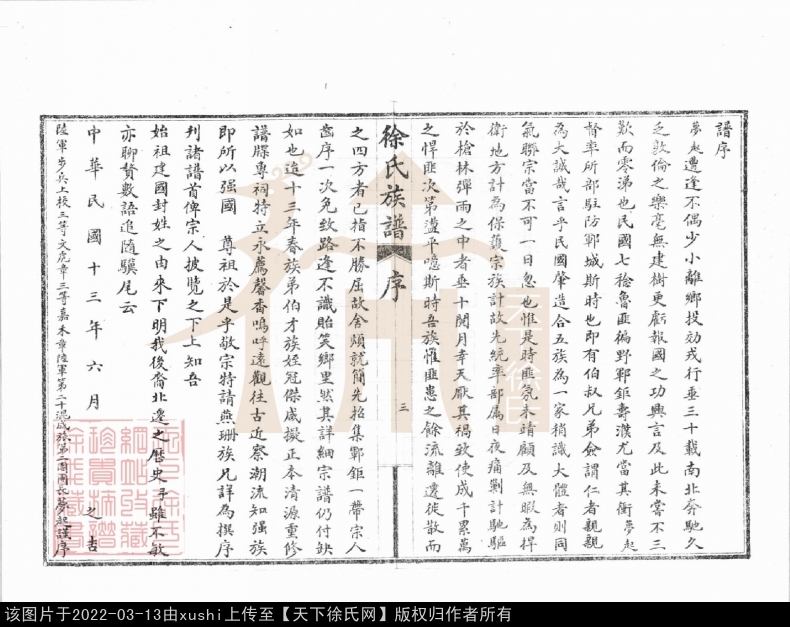 譜序
夢起遭逢不偶少小離鄉投効戎行垂三十載南北奔馳久
乏敦倫之樂毫無建樹更虧報國之功興言及此未嘗不三
歎而零涕也民國七稔魯匪徧野鄆鉅壽濮尤當其衝夢起
督率所部駐防鄆城斯時也即有伯叔兄弟僉謂仁者親親
為大誠哉言乎民國肇造合五族為一家稍識大體者則同
氣聯宗當不可一日忽也惟是時匪氛未靖顧及無暇為捍
衛地方計為保護宗族計故先統率部屬日夜痛剿計馳驅
於槍林彈雨之中者垂十閱月幸天厭其禍致使成千累萬
之悍匪次第盪平噫斯時吾族罹匪患之餘流離遷徙散而
徐氏族譜 序
三
之四方者已指不勝屈故舍煩就簡先招集鄆鉅一帶宗人
齒序一次免致路逢不識貽笑鄉里然其詳細宗譜仍付缺
如也迨十三年春族弟伯才族姪冠傑咸擬正本清源重修
譜牒專祠特立永薦馨香嗚呼遠觀往古近察潮流知强族
即所以强國 尊祖於是乎敬宗特請燕珊族兄詳為撰序
刋諸譜首俾宗人披覽之下上知吾
始祖建國封姓之由來下明我後裔北遷之歷史予雖不敏
亦聊贅數語追隨驥尾云
中華民國十三年六月 之吉
陸軍步兵上校三等文虎章三等嘉禾章陸軍第二十混成旅第二團團長夢起謹序
天下徐氏
該图片于2022-03-13由xushi上传至【天下徐氏网】版权归作者所有